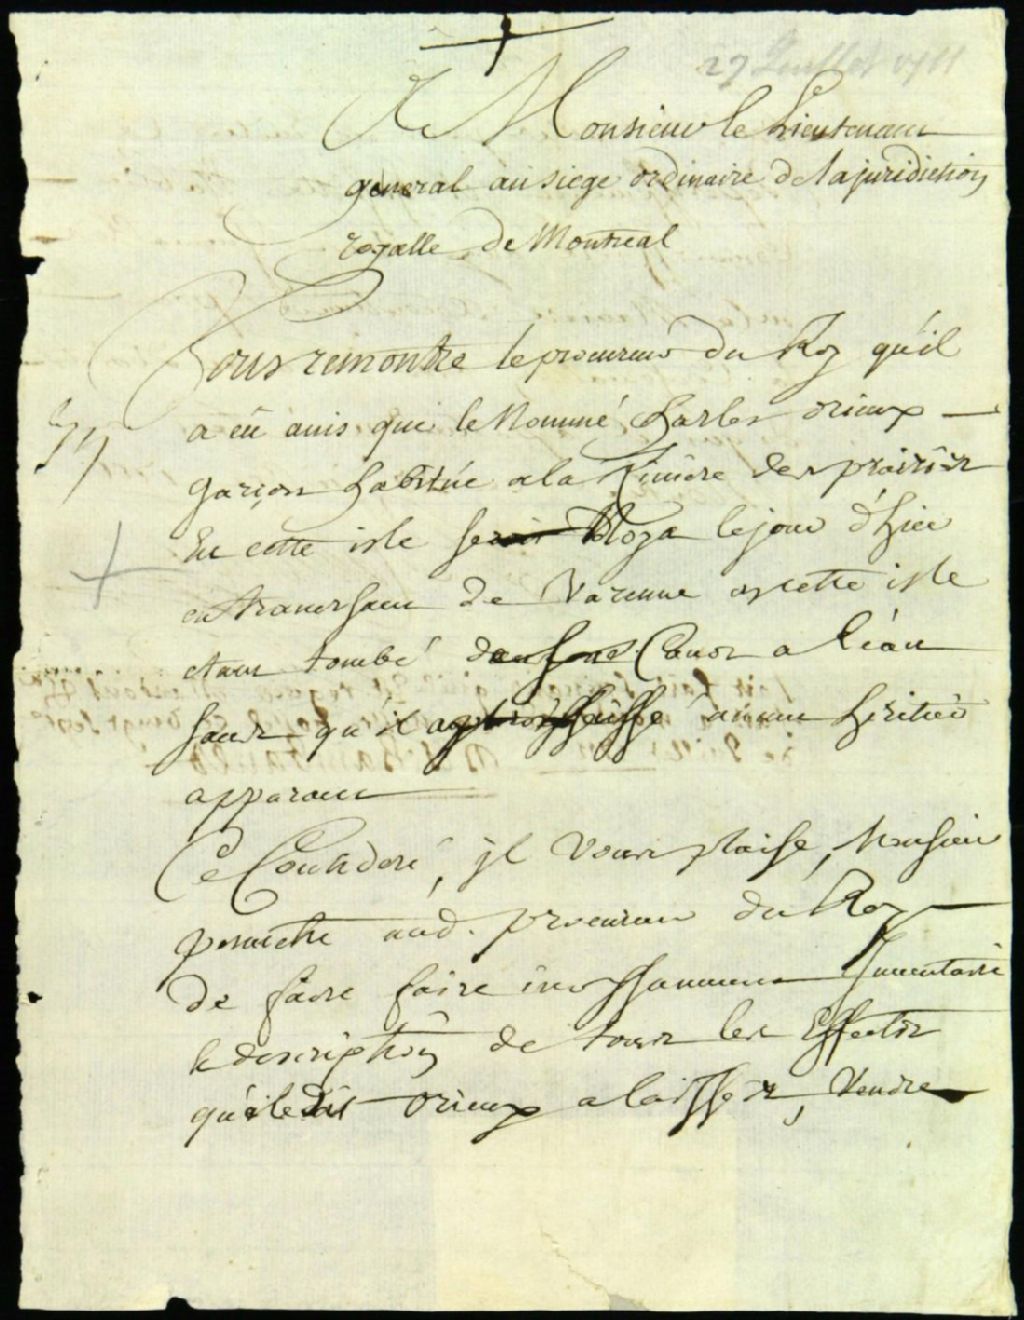 27 Juillet 1711
A Monsieur le Lieutenant
general au siege ordinaire de la juridiction
royalle de Montreal
Vous remontre le procureur du Roy qu'il
a eü avis que le Nommé Charles orieux
garçon habitüé a la Riviere des prairies
En cette isle se Noya le jour d'hier
en traversant de Varenne a cette isle
etant tombé de son Canot a l'eau
sans qu'il aucun heritier
apparent
Ce Consideré, jl vous plaise, Monsieur
permettre aud. procureur du Roy
de faire faire incessamment Inventaire
& description de tous les Effects
que ledit orieux a laissés, Vendre